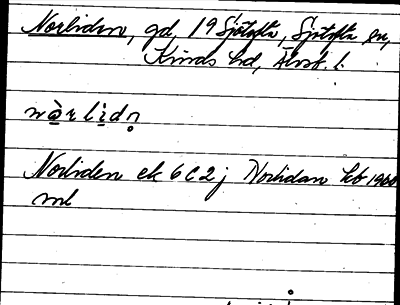 Norlidan, gd, 19 Sjötofta, Sjötofta sn,
Kinds hd, Älvsb. l.
nɑ̀rlidn̥
Norliden ek 6C2j Norlidan hb 1960
ml